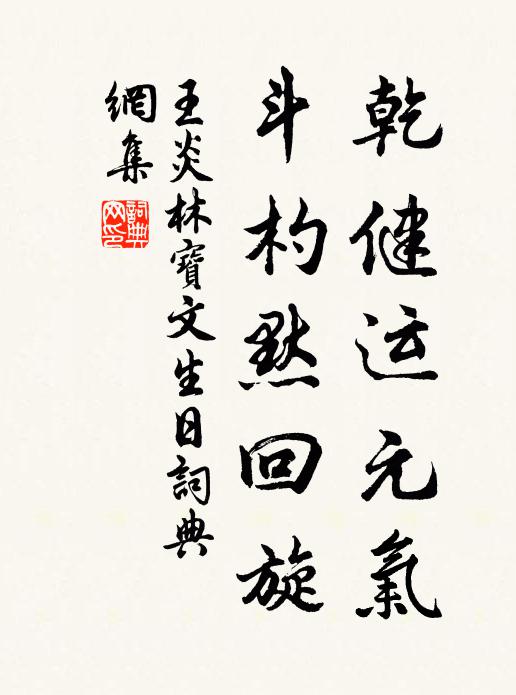 乾健运元氣
斗杓默回旋
王炎林寶文生日詞典
網集
詞典
网印